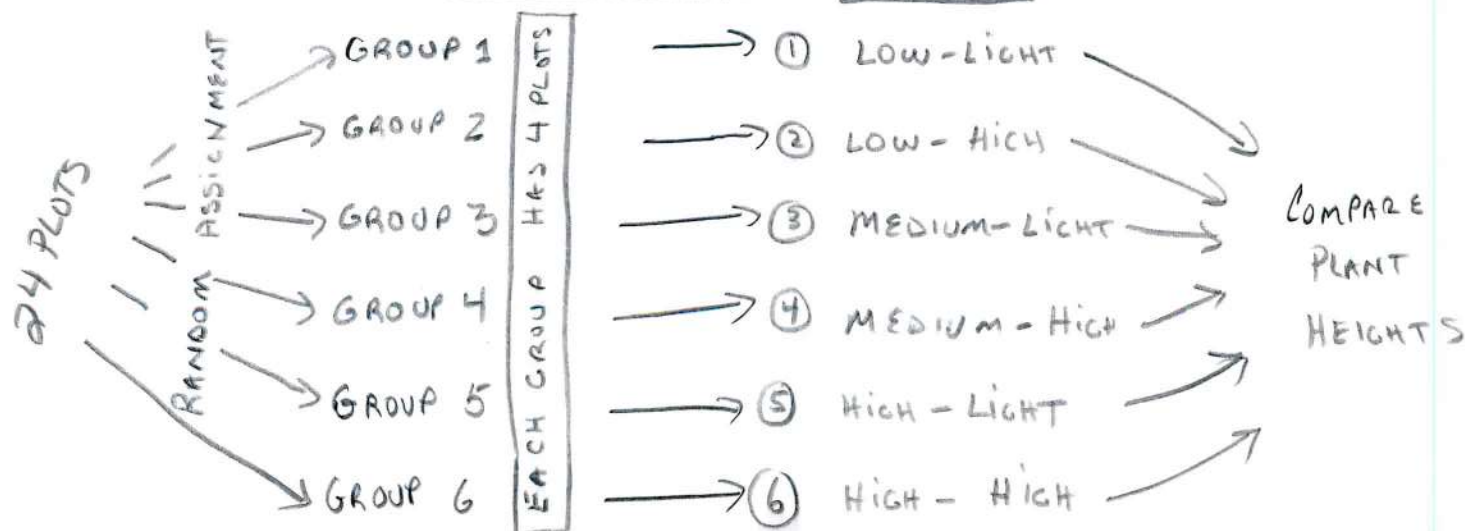 24 PLOTS
RANDOM ASSIGNMENT
GROUP 1
GROUP 2
GROUP 3
GROUP 4
GROUP 5
GROUP 6
EACH GROUP HAS 4 PLOTS
① LOW-LIGHT
② LOW - HIGH
③ MEDIUM-LIGHT
④ MEDIUM - HIGH
⑤ HIGH - LIGHT
⑥ HIGH - HIGH
COMPARE
PLANT
HEIGHTS